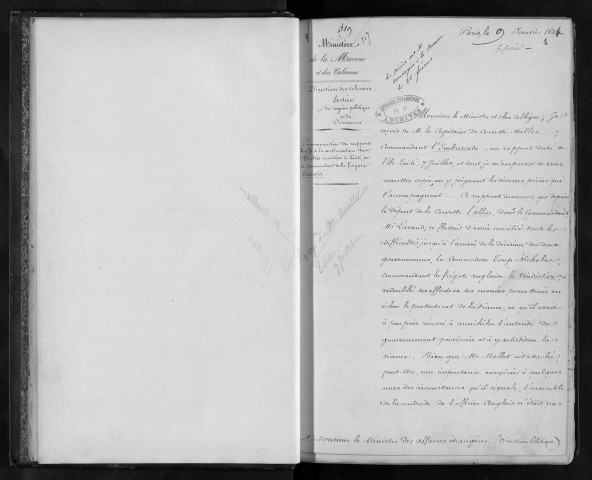 319
Ministère
de la Marine
et des Colonies
Direction des colonies,
Section
du régime politique
et du
Commerce
Communication du rapport
Paris, le 9 Janvier 1844
Monsieur le Ministre et cher collègue, Je
reçois de M. le Capitaine de Corvette Mallet,
Commandant l'Embuscade, un rapport daté de
l'île Taïti, 7 Juillet, et dont je m'empresse de vous
remettre copie, en y joignant les diverses pièces qui
l'accompagnent. Ce rapport annonce que depuis
le départ de la Corvette l'Allier, dont le Commandant,
Mr Lavaud, se flattait d'avoir concilié toutes les
difficultés jusqu'à l'arrivée de la décision des deux
gouvernements, le Commodore Toup Nicholas,
commandant la frégate anglaise la Vindictive, a
redoublé ses efforts et ses menées pour tenir en
échec le protectorat de la France, et qu'il avait
à peu près réussi à annihiler l'autorité du
gouvernement provisoire et à y substituer la
sienne. Bien que Mr Mallet ait attaché,
peut-être, une importance exagérée à quelques
unes des circonstances qu'il signale, l'ensemble
de la conduite de l'officier Anglais n'était pas
A Monsieur le Ministre des affaires étrangères. (Direction Politique)